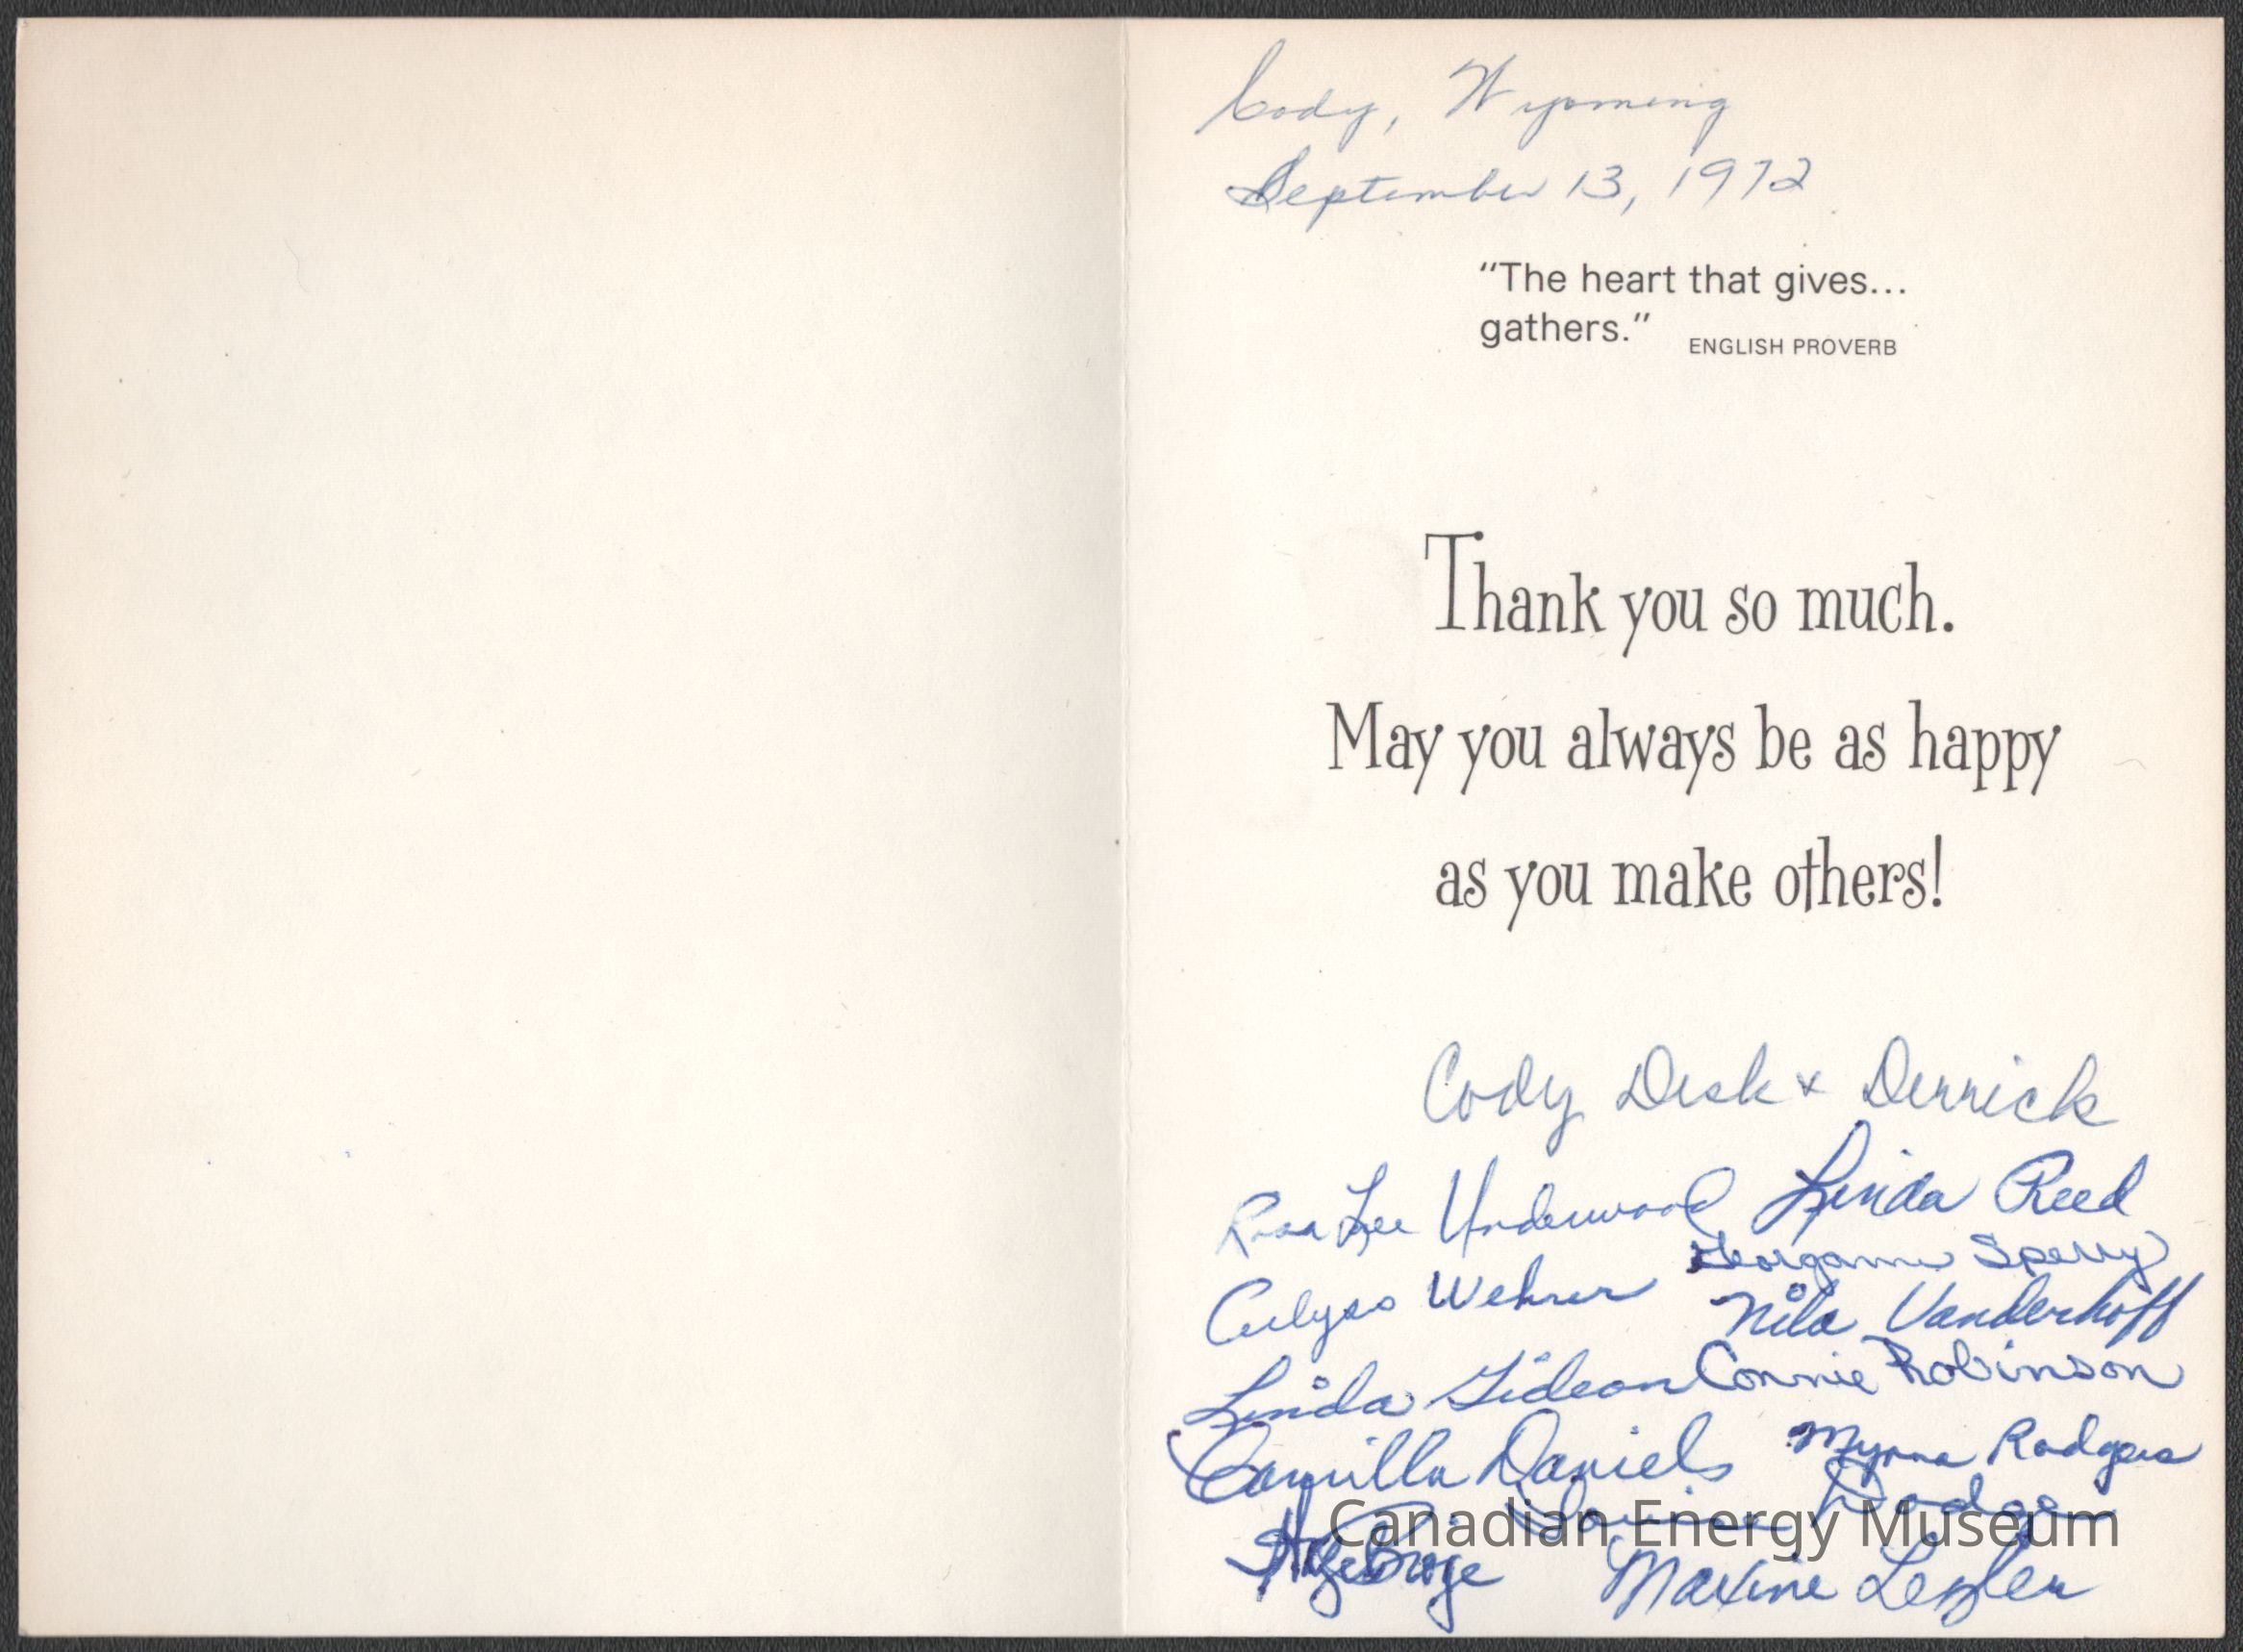 Cody, Wyoming
September 13, 1972
“The heart that gives...
gathers.” ENGLISH PROVERB
Thank you so much.
May you always be as happy
as you make others!
Cody Desk & Derrick
Lee Underwood Linda Reed
Sperry
Wehrer
Nila Vanderhoff
Linda Gideon Connie Robinson
Camilla Daniels Myrna Rodgers
Dodge
Canadian Energy Museum
Maxine